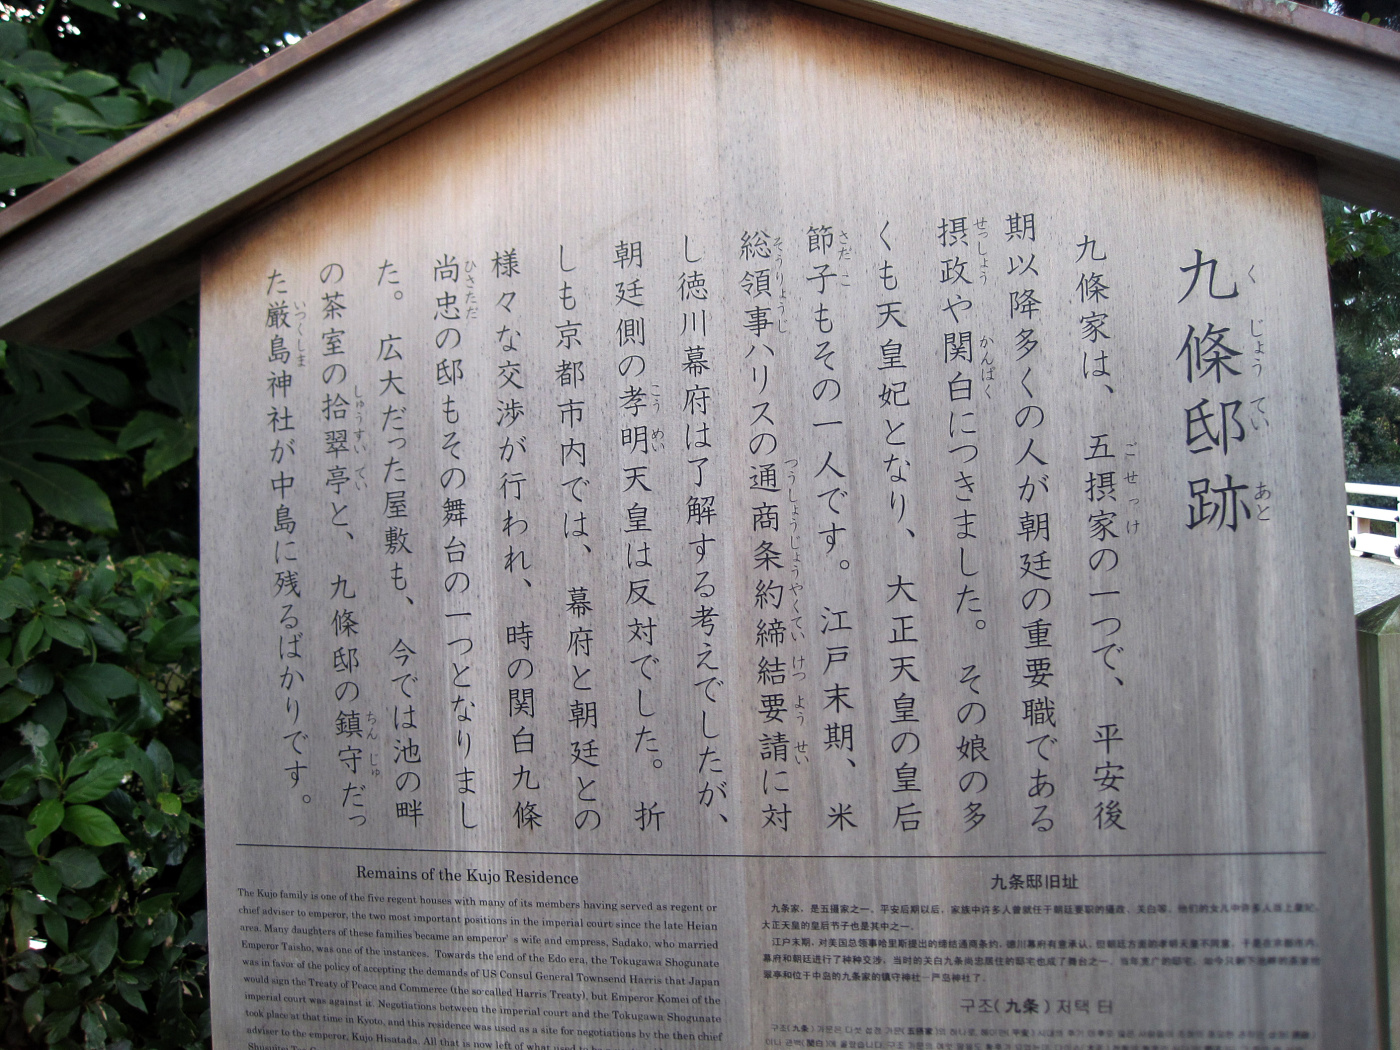 九條邸跡
くじょうていあと
九條家は、五摂家の一つで、平安後
ごせっけ
期以降多くの人が朝廷の重要職である
摂政や関白につきました。その娘の多
せっしょう
かんぱく
くも天皇妃となり、大正天皇の皇后
節子もその一人です。江戸末期、米
さだこ
総領事ハリスの通商条約締結要請に対
そうりょうじ
つうしょうじょうやくていけつようせい
し徳川幕府は了解する考えでしたが、
朝廷側の孝明天皇は反対でした。折
こうめい
しも京都市内では、幕府と朝廷との
様々な交渉が行われ、時の関白九條
尚忠の邸もその舞台の一つとなりまし
ひさただ
た。広大だった屋敷も、今では池の畔
の茶室の拾翠亭と、九條邸の鎮守だっ
しゅうすいてい
ちんじゅ
た厳島神社が中島に残るばかりです。
いつくしま
Remains of the Kujo Residence
The Kujo family is one of the five regent houses with many of its members having served as regent or
chief adviser to emperor, the two most important positions in the imperial court since the late Heian
area. Many daughters of these families became an emperor's wife and empress, Sadako, who married
Emperor Taisho, was one of the instances. Towards the end of the Edo era, the Tokugawa Shogunate
was in favor of the policy of accepting the demands of US Consul General Townsend Harris that Japan
would sign the Treaty of Peace and Commerce (the so-called Harris Treaty), but Emperor Komei of the
imperial court was against it. Negotiations between the imperial court and the Tokugawa Shogunate
took place at that time in Kyoto, and this residence was used as a site for negotiations by the then chief
adviser to the emperor, Kujo Hisatada. All that is now left of what used to be
九条邸旧址
九条家，是五摄家之一，平安后期以后，家族中许多人曾就任于朝廷要职的摄政、关白等，他们的女儿中许多人当上皇妃，
大正天皇的皇后节子也是其中之一。
江户末期，对美国总领事哈里斯提出的缔结通商条约，德川幕府有意承认，但朝廷方面的孝明天皇不同意，于是在京都市内，
幕府和朝廷进行了种种交涉，当时的关白九条尚忠居住的邸宅也成了舞台之一。当年宽广的邸宅，如今只剩下池畔的茶室拾
翠亭和位于中岛的九条家的镇守神社—严岛神社了。
구조(九条) 저택 터